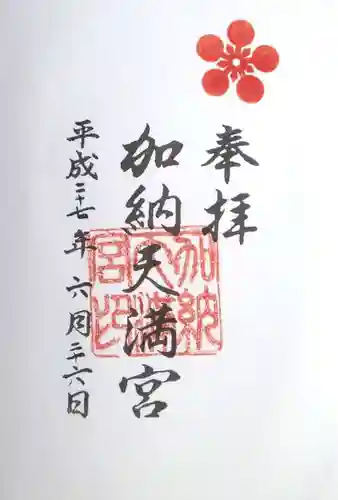 奉拝
加納天満宮
加納天満宮印
平成二十七年六月二十六日